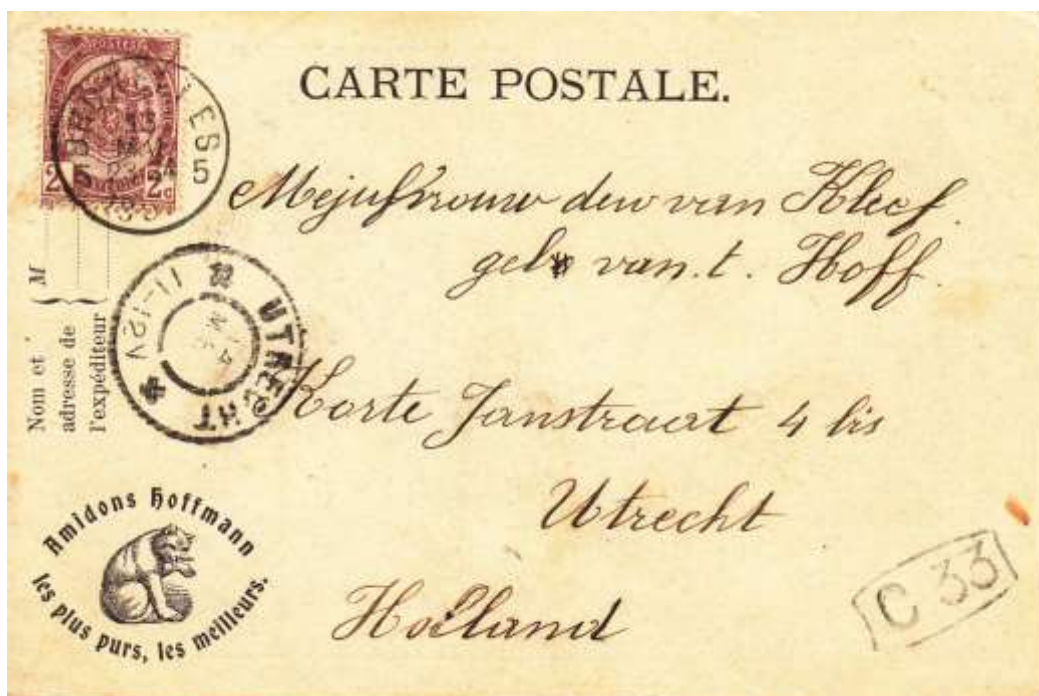 CARTE POSTALE.
Mejufvrouw dew van Kleef.
geb. van.t. Hoff.
Korte Janstraat 4 bis
Utrecht
Holland
POSTES
2 2c
BRUXELLES
13
5 5
M
Nom et
adresse de
l'expéditeur
UTRECHT
11-12V
Amidons Hoffmann
les plus purs, les meilleurs.
C 33